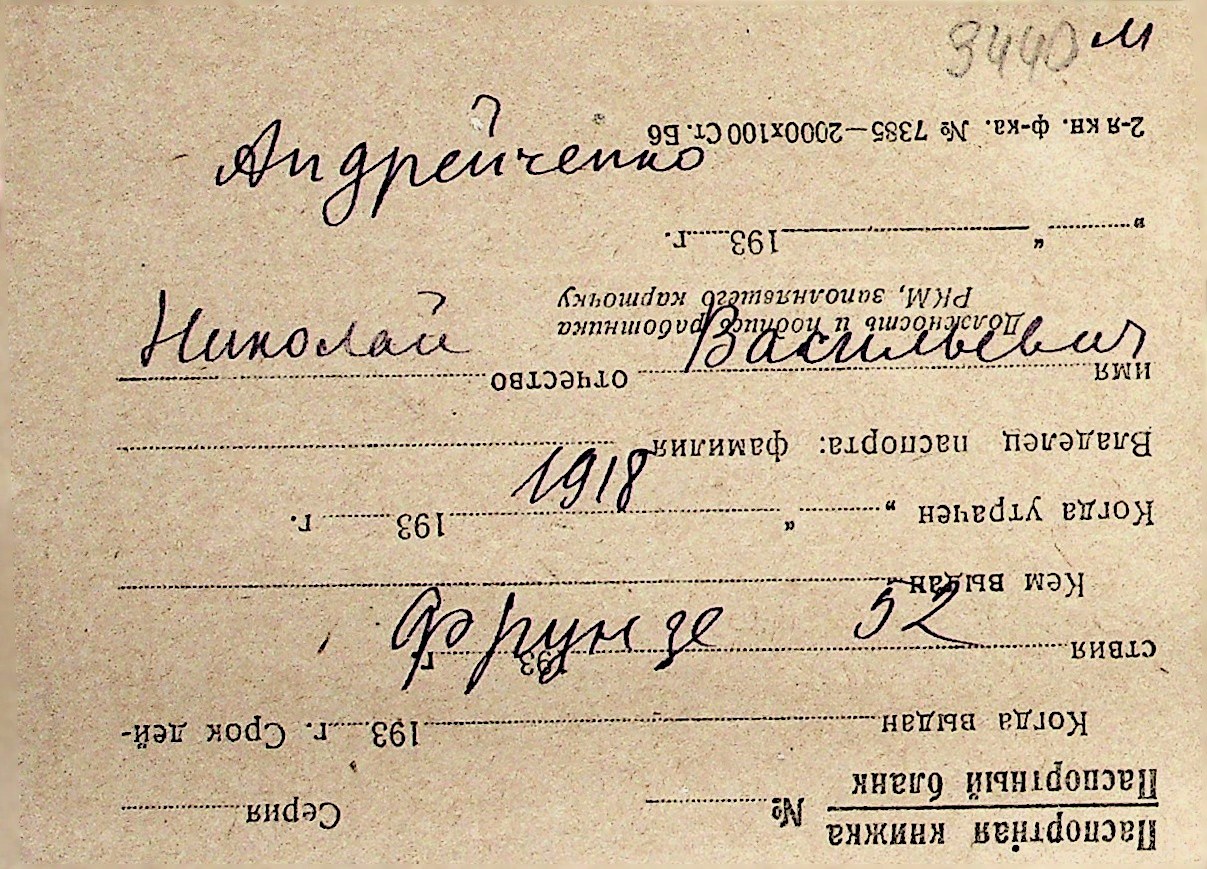 м
Андрейченко
Николай Васильевич
1918
Фрунзе 52
Паспортная книжка
Паспортный бланк № Серия
Когда выдан 193 г. Срок дей-
ствия 193 г.
Кем выдан
Когда утрачен „ “ 193 г.
Владелец паспорта: фамилия
имя отчество
Должность и подпись работника
РКМ, заполнявшего карточку
„ “ 193 г.
2-я кн. ф-ка. № 7385—2000х100 Ст. Б6